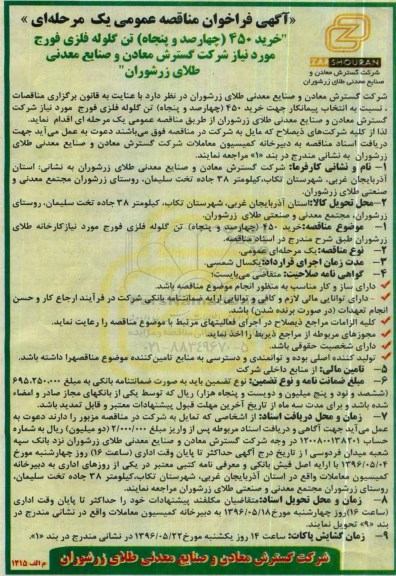 «آگهی فراخوان مناقصه عمومی یک مرحله‌ای»
"خرید ۴۵۰ (چهارصد و پنجاه) تن گلوله فلزی فورج
مورد نیاز شرکت گسترش معادن و صنایع معدنی
طلای زرشوران"
ZARSHOURAN
شرکت گسترش معادن و
صنایع معدنی طلای زرشوران
شرکت گسترش معادن و صنایع معدنی طلای زرشوران در نظر دارد با عنایت به قانون برگزاری مناقصات
، نسبت به انتخاب پیمانکار جهت خرید ۴۵۰ (چهارصد و پنجاه) تن گلوله فلزی فورج مورد نیاز شرکت
گسترش معادن و صنایع معدنی طلای زرشوران از طریق مناقصه عمومی یک مرحله ای اقدام نماید.
لذا از کلیه شرکت‌های ذیصلاح که مایل به شرکت در مناقصه فوق می‌باشند دعوت به عمل می‌آید جهت
دریافت اسناد مناقصه به دبیرخانه کمیسیون معاملات شرکت گسترش معادن و صنایع معدنی طلای
زرشوران به نشانی مندرج در بند «۱» مراجعه نمایند.
۱- نام و نشانی کارفرما: شرکت گسترش معادن و صنایع معدنی طلای زرشوران به نشانی: استان
آذربایجان غربی، شهرستان تکاب، کیلومتر ۳۸ جاده تخت سلیمان، روستای زرشوران مجتمع معدنی و
صنعتی طلای زرشوران.
۲- محل تحویل کالا: استان آذربایجان غربی، شهرستان تکاب، کیلومتر ۳۸ جاده تخت سلیمان، روستای
زرشوران، مجتمع معدنی و صنعتی طلای زرشوران.
۱- موضوع مناقصه: خرید ۴۵۰ (چهارصد و پنجاه) تن گلوله فلزی فورج مورد نیاز کارخانه طلای
زرشوران طبق شرح مندرج در اسناد مناقصه.
۲- نوع مناقصه: یک مرحله‌ای عمومی.
۳- مدت زمان اجرای قرارداد: یکسال شمسی.
۴- گواهی نامه صلاحیت: متقاضی می‌بایست:
✓ دارای ساز و کار مناسب به منظور انجام موضوع مناقصه باشد.
✓ دارای توانایی مالی لازم و کافی و توانایی ارایه ضمانتنامه بانکی شرکت در فرآیند ارجاع کار و حسن
انجام تعهدات (در صورت برنده شدن) باشد.
✓ کلیه الزامات مراجع ذیصلاح در اجرای فعالیتهای مرتبط با موضوع مناقصه را رعایت نماید.
✓ مجوزهای مربوطه از مراجع ذیربط را اخذ نماید.
✓ دارای شخصیت حقوقی باشد.
✓ تولید کننده اصلی بوده و توانمندی و دسترسی به منابع تامین کننده موضوع مناقصه را داشته باشد.
۵- تامین مالی: از منابع داخلی شرکت
۶- مبلغ ضمانت نامه و نوع تضمین: نوع تضمین باید به صورت ضمانتنامه بانکی به مبلغ ۶۹۵.۲۵۰.۰۰۰
(ششصد و نود و پنج میلیون و دویست و پنجاه هزار) ریال که توسط یکی از بانکهای مجاز صادر و امضاء
شده باشد و برای مدت سه ماه از تاریخ آخرین مهلت قبول پیشنهادات معتبر و قابل تمدید باشد.
۷- زمان و محل دریافت اسناد: از اشخاصی که تمایل به شرکت در مناقصه مزبور را دارند دعوت به
عمل می‌آید جهت آگاهی و دریافت اسناد مربوطه پس از واریز مبلغ ۲/۰۰۰/۰۰۰ (دو میلیون) ریال به شماره
حساب ۱۲۰۰۸۰۰۱۳۸۲۰۱ در وجه شرکت گسترش معادن و صنایع معدنی طلای زرشوران نزد بانک سپه
شعبه میدان فردوسی از تاریخ درج آگهی حداکثر تا پایان وقت اداری (ساعت ۱۶) روز چهارشنبه مورخ
۱۳۹۶/۰۵/۰۴ با ارایه اصل فیش بانکی و معرفی نامه کتبی معتبر در یکی از روزهای اداری به دبیرخانه
کمیسیون معاملات واقع در استان آذربایجان غربی، شهرستان تکاب، کیلومتر ۳۸ جاده تخت سلیمان،
روستای زرشوران مجتمع معدنی و صنعتی طلای زرشوران مراجعه نمایند.
۸- زمان و محل تحویل اسناد: متقاضیان مکلفند پیشنهادات خود را حداکثر تا پایان وقت اداری
(ساعت ۱۶) روز چهارشنبه مورخ ۱۳۹۶/۰۵/۱۸ به دبیرخانه کمیسیون معاملات واقع در نشانی مندرج در
بند «۹» تحویل نمایند.
۹- زمان گشایش پاکات: ساعت ۱۴ روز یکشنبه مورخ ۱۳۹۶/۰۵/۲۲ در نشانی مندرج در بند «۱۰».
شرکت گسترش معادن و صنایع معدنی طلای زرشوران
م الف ۱۳۱۵
۰۲۱-۸۸۳۴۹۶۷۰-۵